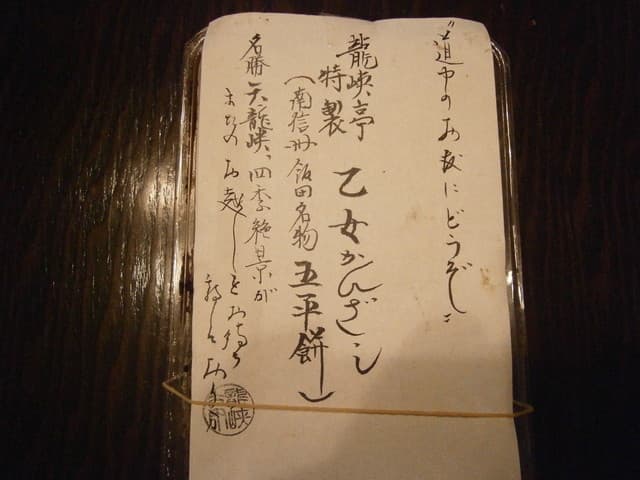 〝道中のお友にどうぞ〟
龍峡亭
特製 乙女かんざし
(南信州飯田名物 五平餅)
名勝天龍峡、四季絶景が
またのお越しをお待ち
致しております
龍峡